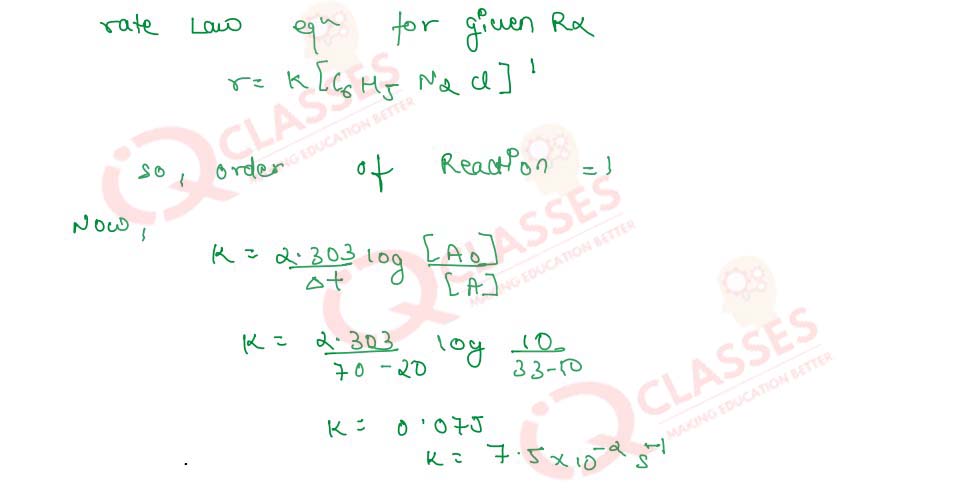 rate Law eqn for given Rx
r = K [C6 H5 N2 Cl]¹
so, order of Reaction = 1
Now,
K = 2.303/Δt log [A0]/[A]
K = 2.303/70-20 log 10/33-10
K = 0.075
K = 7.5 × 10⁻² s⁻¹
IQ CLASSES
MAKING EDUCATION BETTER
IQ CLASSES
MAKING EDUCATION BETTER
IQ CLASSES
MAKING EDUCATION BETTER